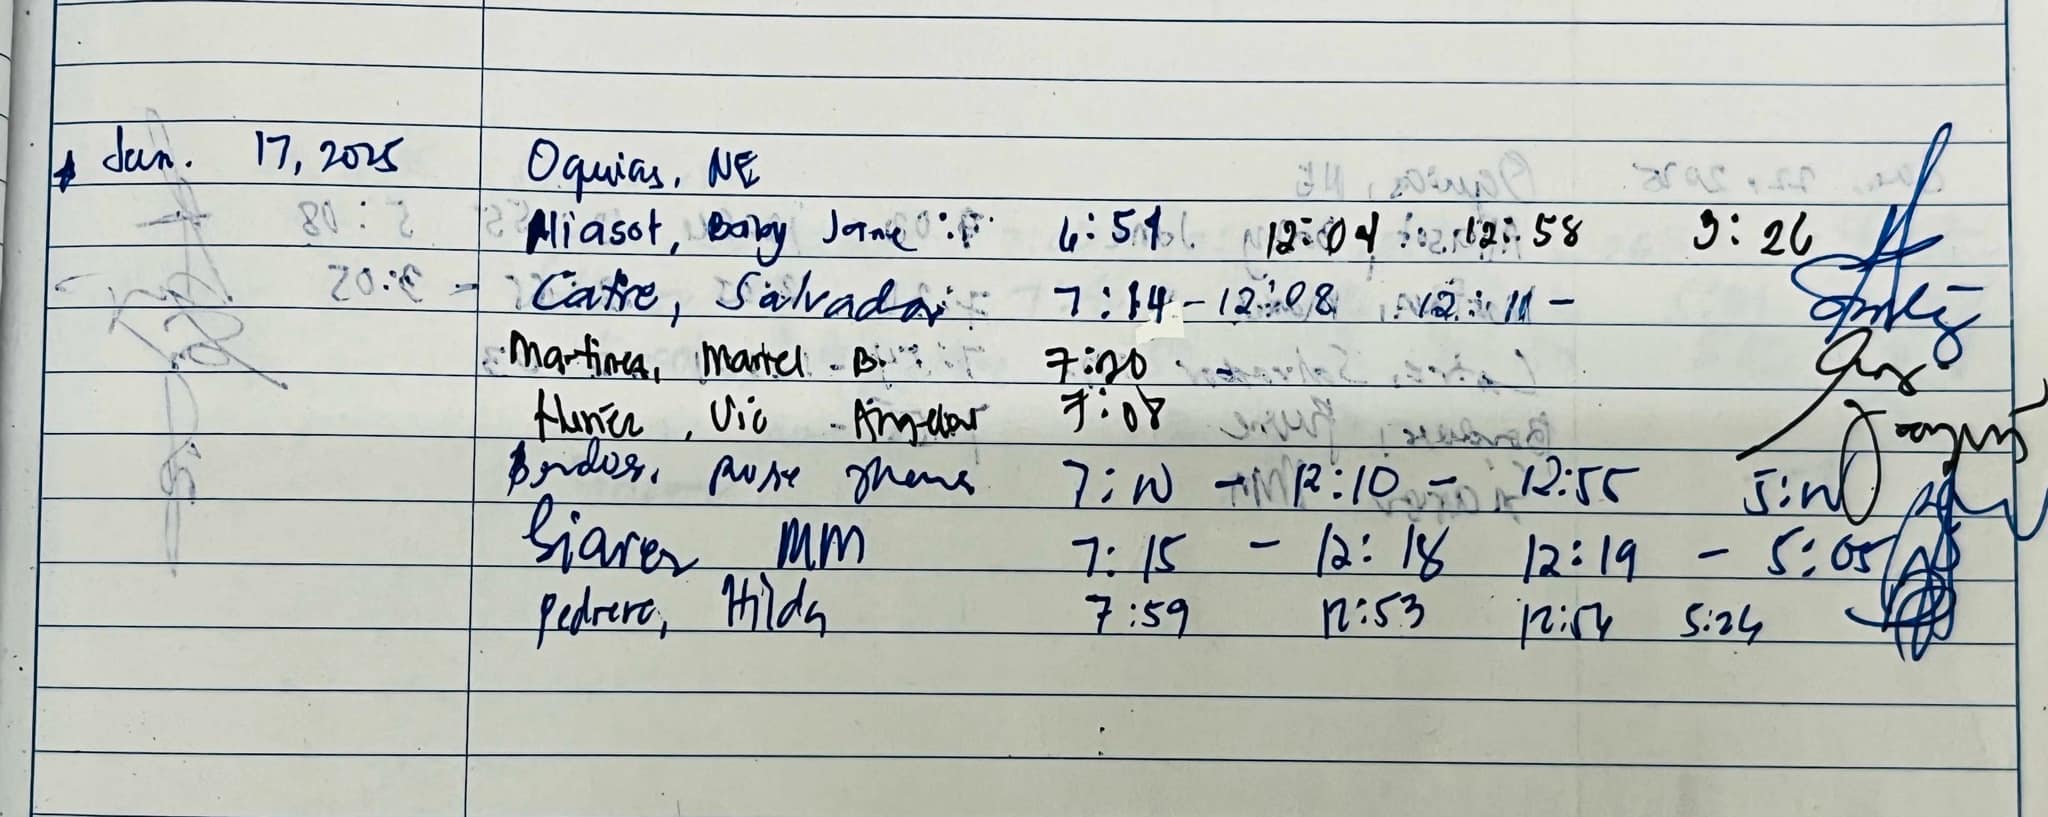 Jan. 17, 2025 Oquias, NE
Aliasot, Baby Jane 6:51 12:04 12:58 3:26
Catre, Salvador 7:14 - 12:08 12:11 -
Martinez, Martel B. 7:20
Vic Angelou 7:08
Rose 7:10 - 12:10 - 12:55 5:10
MM 7:15 - 12:18 12:19 - 5:05
Pedrero, Hilda 7:59 12:53 12:54 5:24